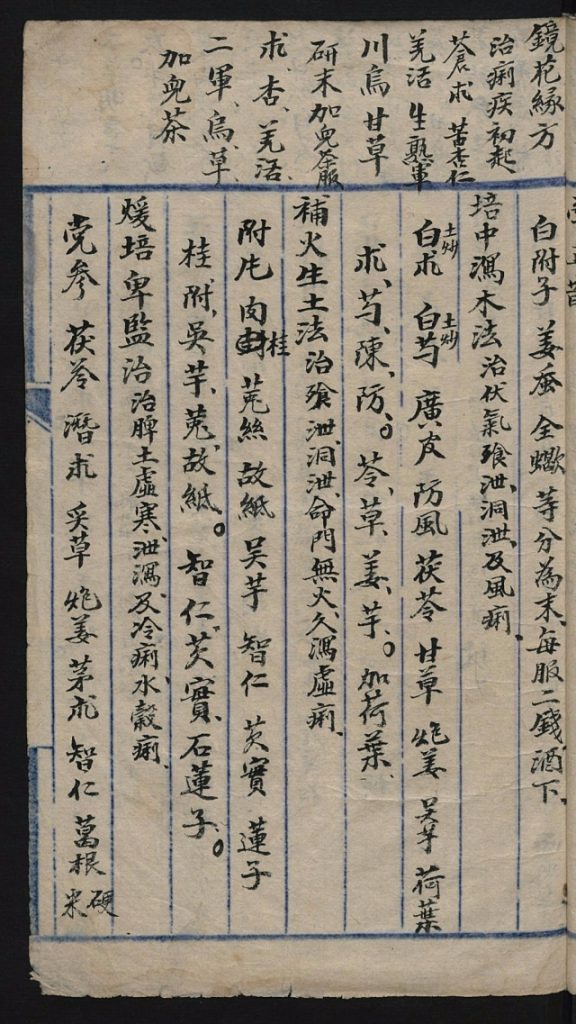 鏡花緣方
治痢疾初起
蒼朮 苦杏仁
羌活 生熟軍
川烏 甘草
研末加兒茶服
朮、杏、羌活、
二軍、烏、草、
加兒茶
白附子 姜蚕 全蠍 等分為末、每服二錢、酒下、
培中瀉木法 治伏氣飱泄、洞泄、及風痢、
土炒白朮 土炒白芍 廣皮 防風 茯苓 甘草 炮姜 吴芋 荷葉
朮、芍、陳、防。苓、草、姜、芋。加荷葉、
補火生土法 治飱泄、洞泄、命門無火、久瀉虛痢、
附片 肉桂 菟絲 故紙 吴芋 智仁 芡實 蓮子
桂、附、吳芋、菟、故紙。智仁、芡實、石蓮子。
煖培卑監治 治脾土虛寒、泄瀉、及冷痢、水穀痢、
党參 茯苓 潛朮 炙草 炮姜 茅朮 智仁 葛根 硬米